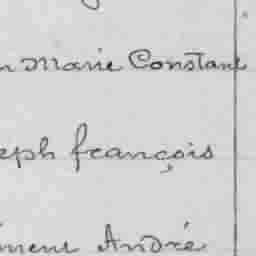 Marie Constant
eph françois
ment André